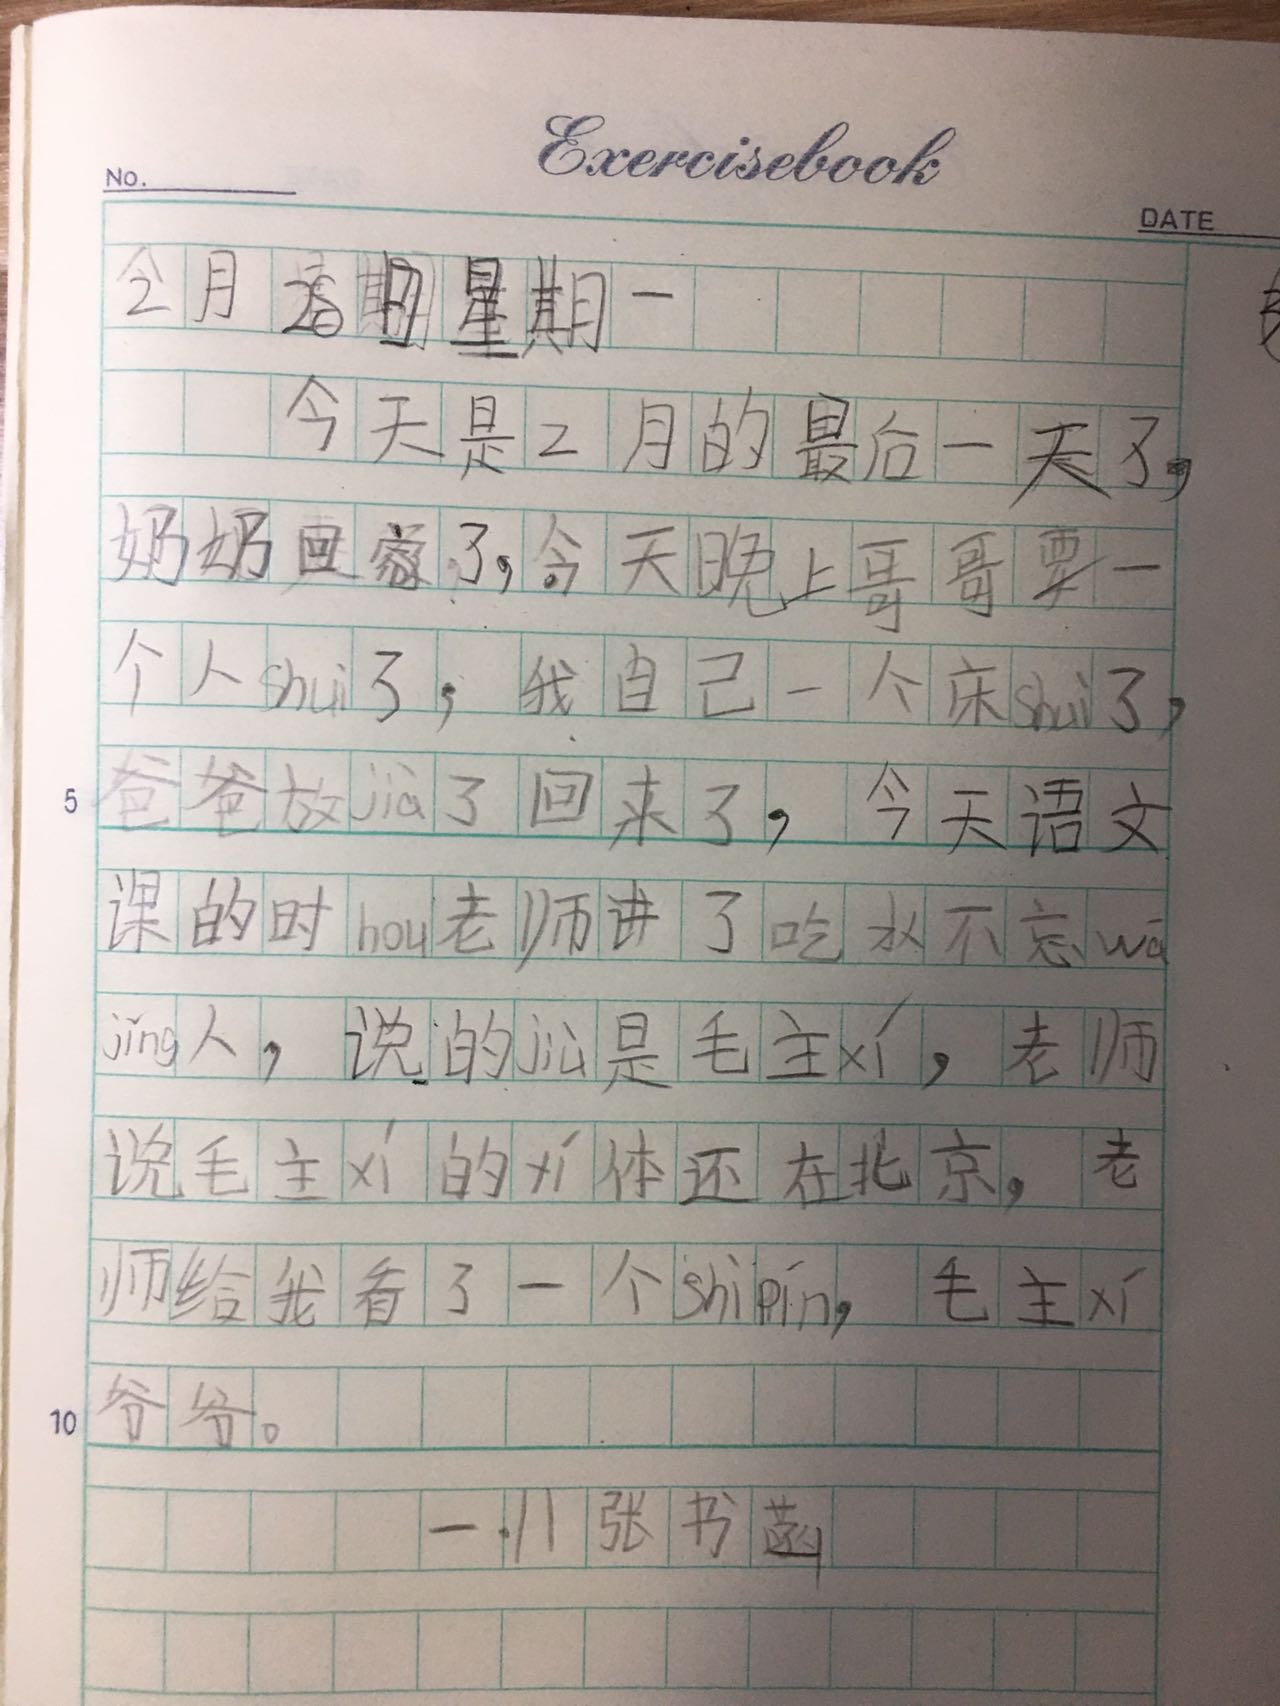 Exercisebook
No.
DATE
2月28日星期一
今天是2月的最后一天了，
奶奶回家了，今天晚上哥哥要一
个人shui了，我自己一个床shui了，
5
爸爸放jia了回来了，今天语文
课的时hou老师讲了吃水不忘wā
jǐng人，说的jiù是毛主xí，老师
说毛主xí的yí体还在北京，老
师给我看了一个shìpín，毛主xí
10
爷爷。
一.11张书菡